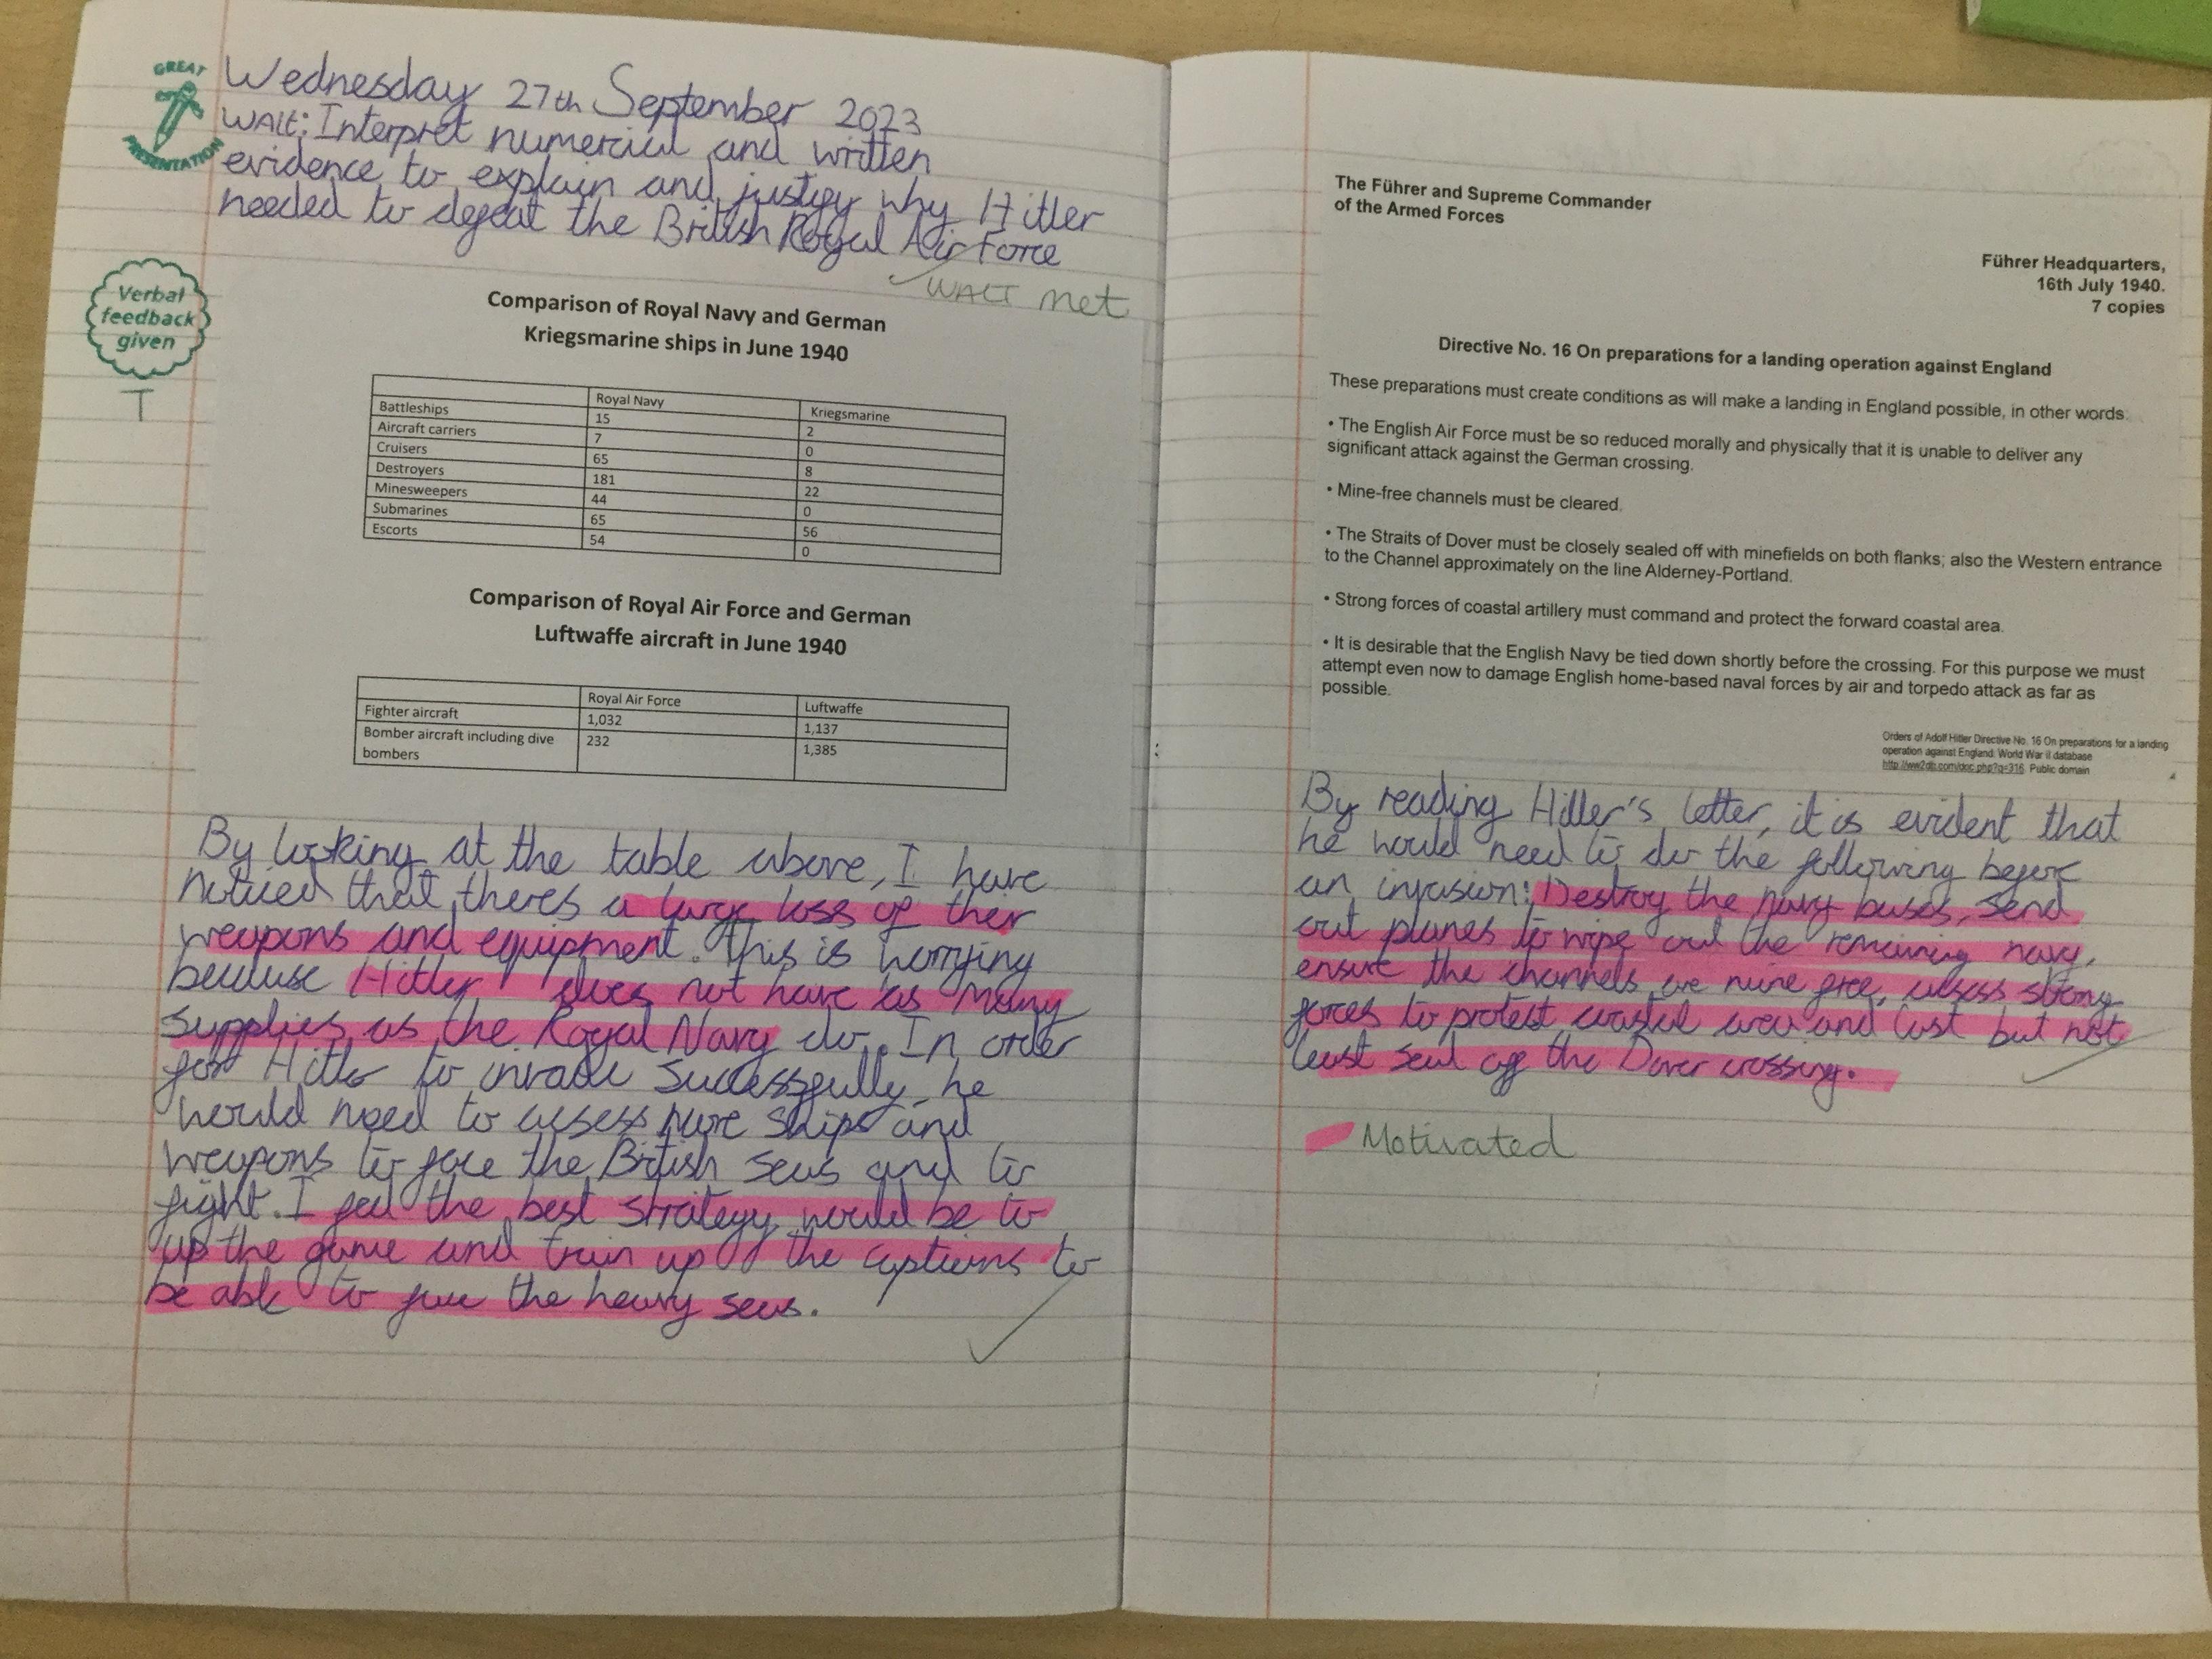 GREAT
PRESENTATION
Wednesday 27th September 2023
WALt: Interpret numercial and written
evidence to explain and justify why Hitler
needed to defeat the British Royal Air Force
WALT met
Verbal
feedback
given
T
Comparison of Royal Navy and German
Kriegsmarine ships in June 1940
Royal Navy Kriegsmarine
Battleships 15 2
Aircraft carriers 7 0
Cruisers 65 8
Destroyers 181 22
Minesweepers 44 0
Submarines 65 56
Escorts 54 0
Comparison of Royal Air Force and German
Luftwaffe aircraft in June 1940
Royal Air Force Luftwaffe
Fighter aircraft 1,032 1,137
Bomber aircraft including dive 232 1,385
bombers
By looking at the table above, I have
noticed that theres a large loss of their
weapons and equipment. This is worrying
because Hitler does not have as many
supplies as the Royal Navy do. In order
for Hitler to invade successfully, he
would need to assess more ships and
weapons to face the British seas and to
fight. I feel the best strategy would be to
up the game and train up the captians to
be able to face the heavy seas.
The Führer and Supreme Commander
of the Armed Forces
Führer Headquarters,
16th July 1940.
7 copies
Directive No. 16 On preparations for a landing operation against England
These preparations must create conditions as will make a landing in England possible, in other words:
• The English Air Force must be so reduced morally and physically that it is unable to deliver any
significant attack against the German crossing.
• Mine-free channels must be cleared.
• The Straits of Dover must be closely sealed off with minefields on both flanks; also the Western entrance
to the Channel approximately on the line Alderney-Portland.
• Strong forces of coastal artillery must command and protect the forward coastal area.
• It is desirable that the English Navy be tied down shortly before the crossing. For this purpose we must
attempt even now to damage English home-based naval forces by air and torpedo attack as far as
possible.
Orders of Adolf Hitler Directive No. 16 On preparations for a landing
operation against England. World War II database
http://ww2db.com/doc.php?q=316. Public domain
By reading Hitler's letter, it is evident that
he would need to do the following before
an invasion: Destroy the navy bases, send
out planes to wipe out the remaining navy,
ensure the channels are mine free, assess strong
forces to protest coastal area and last but not
least seal off the Dover crossing.
Motivated